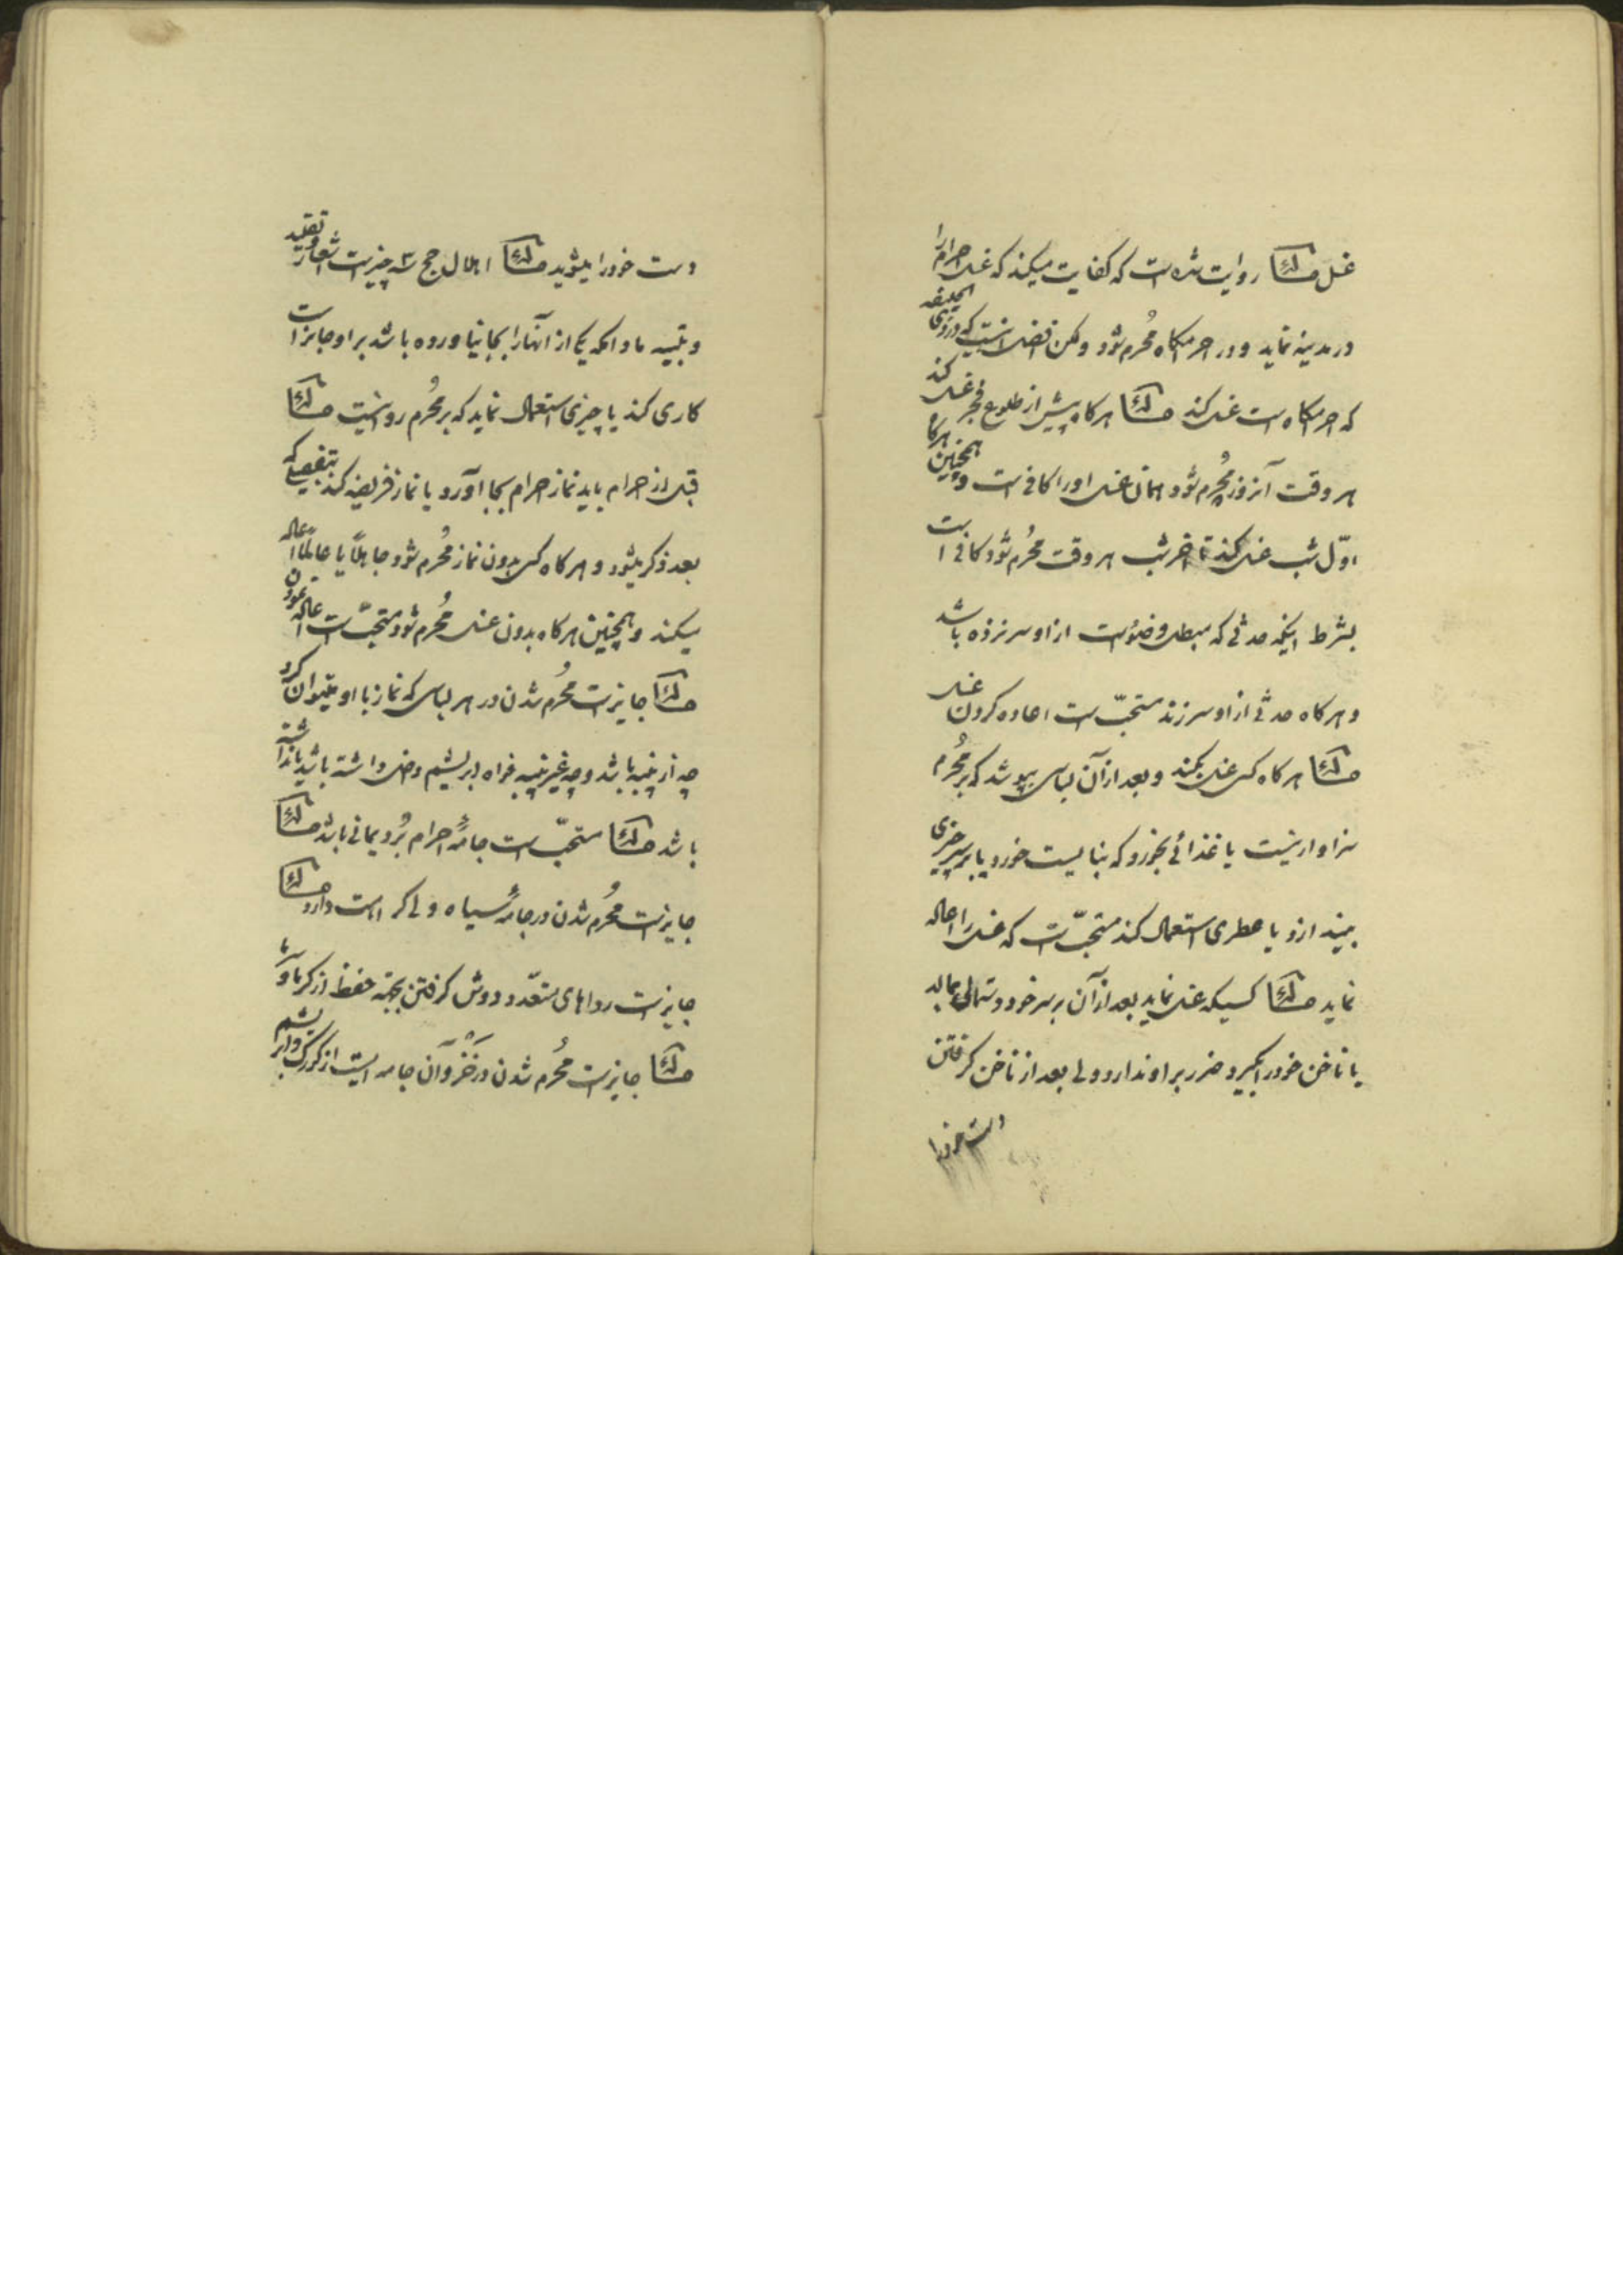 غسل مسئلة روایت شده است که کفایت میکند که غسل احرام را
در مدینه نماید و در احرامگاه مُحرم شود ولکن افضل اینست که در ذی الحلیفه
که احرامگاه است غسل کند مسئلة هرگاه پیش از طلوع فجر غسل کند
هر وقت آنروز مُحرم شود همان غسل او را کافی است و همچنین هرگاه
اوّل شب غسل کند تا آخر شب هر وقت مُحرم شود کافی است
بشرط اینکه حدثی که مبطل وضوست از او سر نزده باشد
و هرگاه حدثی از او سر زند مستحبّ است اعاده کردن غسل
مسئلة هرگاه کسی غسل بکند و بعد از آن لباسی بپوشد که بر مُحرم
سزاوار نیست یا غذائی بخورد که نبایست خورد یا بر سر چیزی
بیندازد یا عطری استعمال کند مستحبّ است که غسل را اعاله
نماید مسئلة کسیکه غسل نماید بعد از آن بر سر خود دستمالی بمالد
یا ناخن خود را بگیرد ضرر بر او ندارد ولی بعد از ناخن گرفتن
دست خود را
دست خود را بشوید مسئلة اهلال حج سه چیز است اشعار و تقلید
و تلبیه مادامکه یکی از آنها را بجا نیاورده باشد بر او جایز است
کاری کند یا چیزی استعمال نماید که بر مُحرم روا نیست مسئلة
قبل از احرام باید نماز احرام بجا آورد یا نماز فریضه کند بتفصیلی که
بعد ذکر میشود و هرگاه کسی بدون نماز مُحرم شود جاهلاً یا عالماً اعاله
میکند و همچنین هرگاه بدون غسل مُحرم شود مستحبّ است اعاله نمودن
مسئلة جایز است مُحرم شدن در هر لباسی که نماز با او میتوان کرد
چه از پنبه باشد و چه غیر پنبه خواه ابریشم داخل داشته باشد یا نداشته
باشد مسئلة مستحبّ است جامهٔ احرام بُرد یمانی باشد مسئلة
جایز است مُحرم شدن در جامهٔ سیاه ولی کراهت دارد مسئلة
جایز است رداهای متعدّد دوش گرفتن بجهة حفظ از گرما و سرما
مسئلة جایز است مُحرم شدن در خَز و آن جامه ایست از کرک و ابریشم